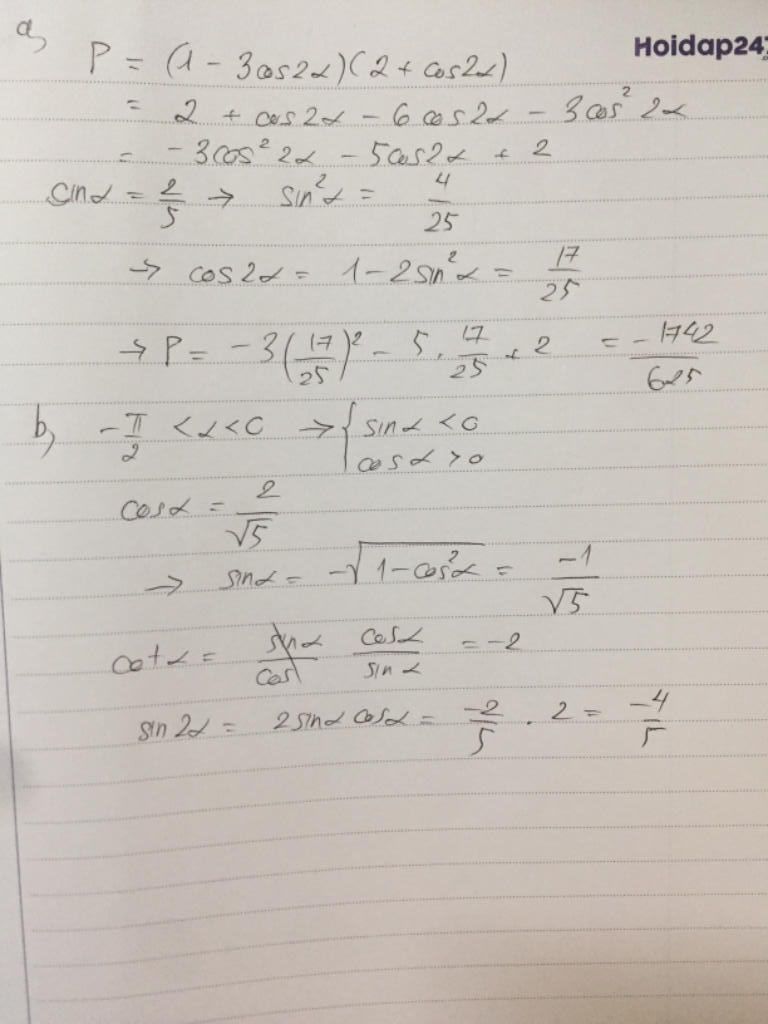 Hoidap247
a) P = (1 - 3cos2α)(2 + cos2α)
= 2 + cos2α - 6cos2α - 3cos² 2α
= -3cos² 2α - 5cos2α + 2
sinα = 2/5 → sin²α = 4/25
→ cos2α = 1 - 2sin²α = 17/25
→ P = -3(17/25)² - 5 . 17/25 + 2 = -1742/625
b) -π/2 < α < 0 → { sinα < 0
cosα > 0
cosα = 2/√5
→ sinα = -√(1 - cos²α) = -1/√5
cotα = cosα/sinα = -2
sin2α = 2sinαcosα = -2/5 . 2 = -4/5